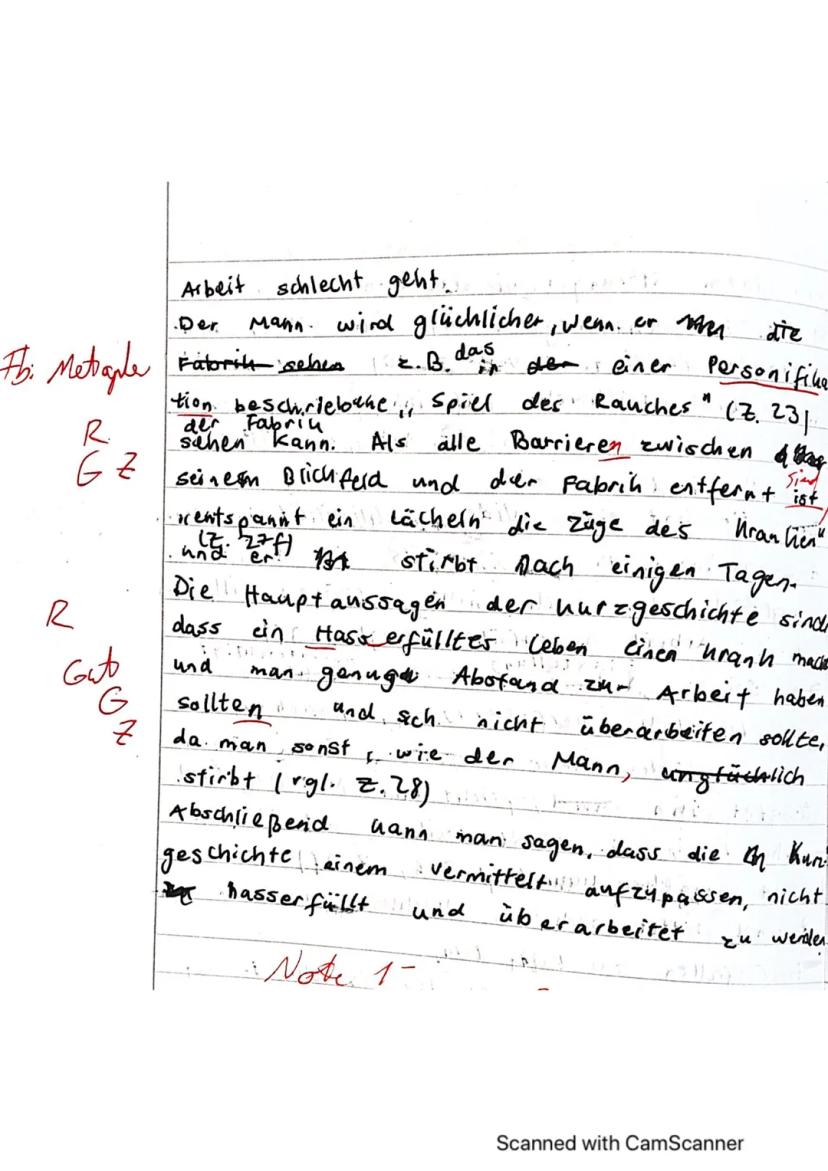 Arbeit schlecht geht.
Der Mann wird glücklicher, wenn er die
Fb: Metapher
Fabrik sehen z.B. das in der einer Personifika
tion beschriebene „Spiel des Rauches" (Z. 23)
der Fabrik
R
sehen kann. Als alle Barrieren zwischen
G Z
sind
seinem Blickfeld und der Fabrik entfernt ist,
"entspannt ein Lächeln die Züge des Kranken"
(Z. 27f)
und er stirbt nach einigen Tagen.
Die Hauptaussagen der Kurzgeschichte sind,
R
dass ein Hass erfülltes Leben einen krank mach
Gut
und man genug Abstand zur Arbeit haben
G
sollten und sch nicht überarbeiten sollte,
Z
da man sonst, wie der Mann, unglücklich
stirbt (vgl. Z. 28)
Abschließend kann man sagen, dass die Kurz
geschichte einem vermittelt aufzupassen, nicht
hasserfüllt und überarbeitet zu werden
Note 1-
Scanned with CamScanner